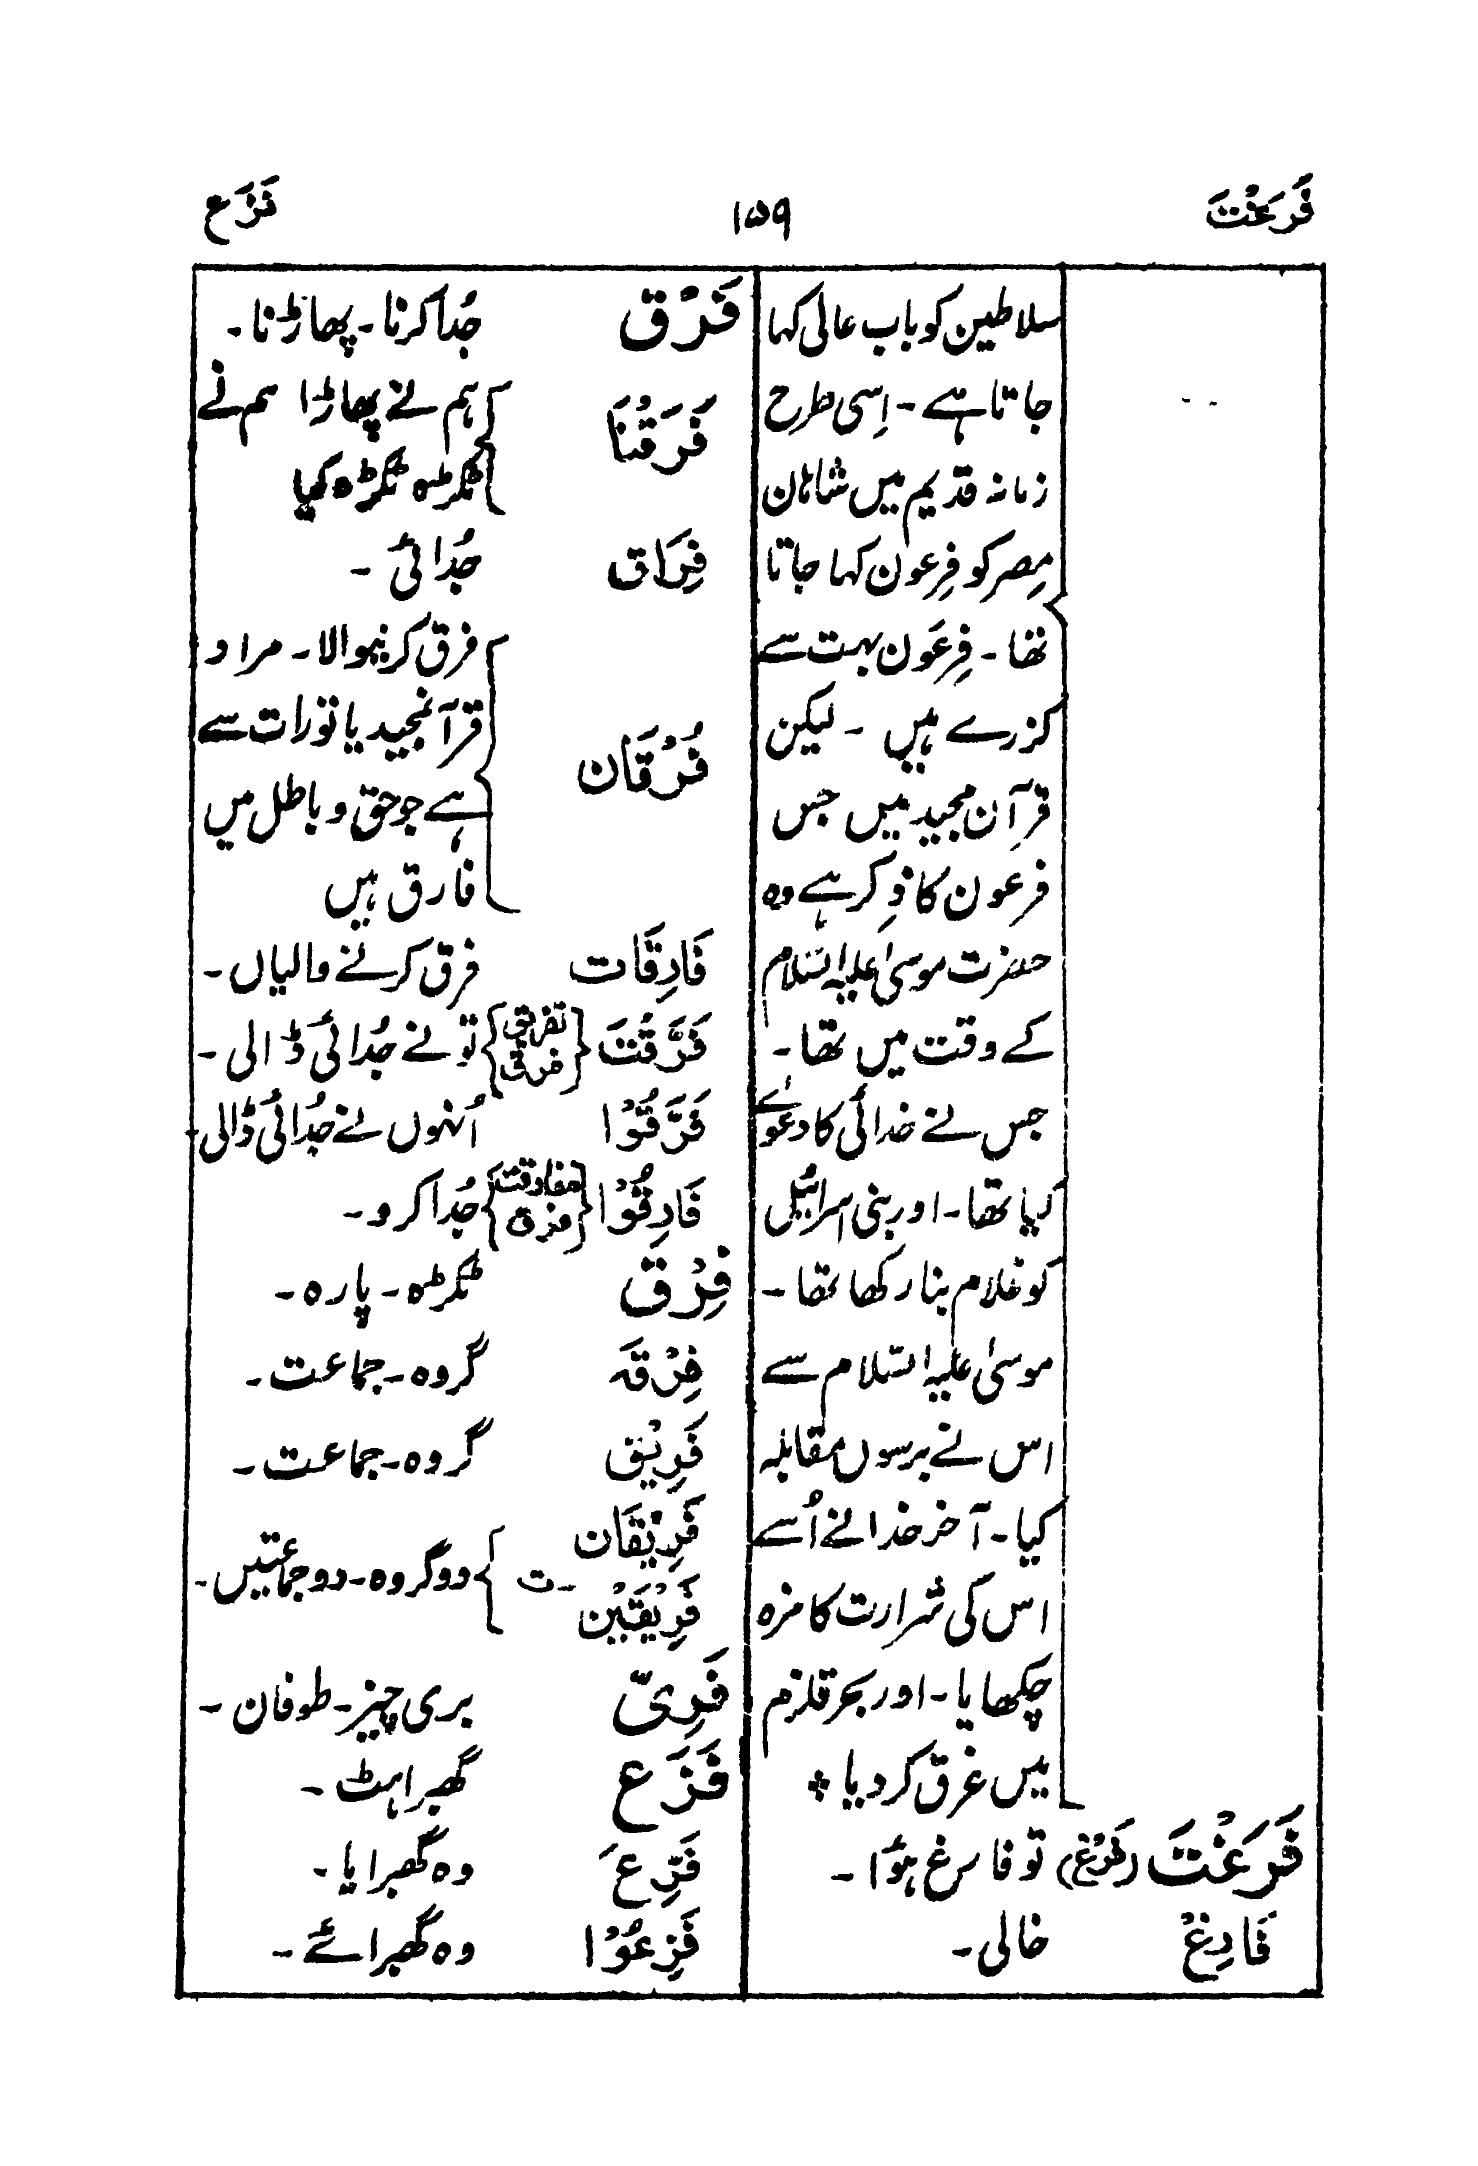 فَرَغْتَ ۱۵۹ فَزَع
سلاطین کو باب عالی کہا
جاتا ہے ۔ اِسی طرح
زمانہ قدیم میں شاہان
مِصر کو فِرعون کہا جاتا
تھا ۔ فِرعَون بہت سے
گزرے ہیں ۔ لیکن
قرآن مجید میں جس
فرعون کا ذِکر ہے وہ
حضرت موسیٰ علیہ السّلام
کے وقت میں تھا ۔
جس نے خدائی کا دعوےٰ
کیا تھا ۔ اور بنی اسرائیل
کو غلام بنا رکھا تھا ۔
موسیٰ علیہ السّلام سے
اس نے برسوں مقابلہ
کیا ۔ آخر خدا نے اُسے
اس کی شرارت کا مزہ
چکھایا ۔ اور بحر قلزم
میں غرق کر دیا ٭
فَرَغْتَ (فَرْغ) تو فارغ ہوُا ۔
فَارِغْ خالی ۔
فَرْق جُدا کرنا ۔ پھاڑنا ۔
فَرَقْنَا ہم نے پھاڑا ہم نے
ٹکڑہ ٹکڑہ کیا
فِرَاق جُدائی ۔
فرق کرنیوالا ۔ مراد
قرآنمجید یا تورات سے
فُرْقَان ہے جو حق و باطل میں
فارق ہیں
فَارِقَات فرق کرنے والیاں ۔
فَرَّقْتَ {تفریق فرق} تو نے جُدائی ڈالی ۔
فَرَّقُوْا اُنہوں نے جُدائی ڈالی ۔
فَارِقُوْا {مفارقت فرق} جُدا کرو ۔
فِرْق ٹکڑہ ۔ پارہ ۔
فِرْقَہ گروہ ۔ جماعت ۔
فَرِیْق گروہ ۔ جماعت ۔
فَرِیْقَان
ت دو گروہ ۔ دو جماعتیں ۔
فَرِیْقَیْن
فَرِیّ بری چیز ۔ طوفان ۔
فَزَع گھبراہٹ ۔
فَزِعَ وہ گھبرایا ۔
فَزِعُوْا وہ گھبرائے ۔